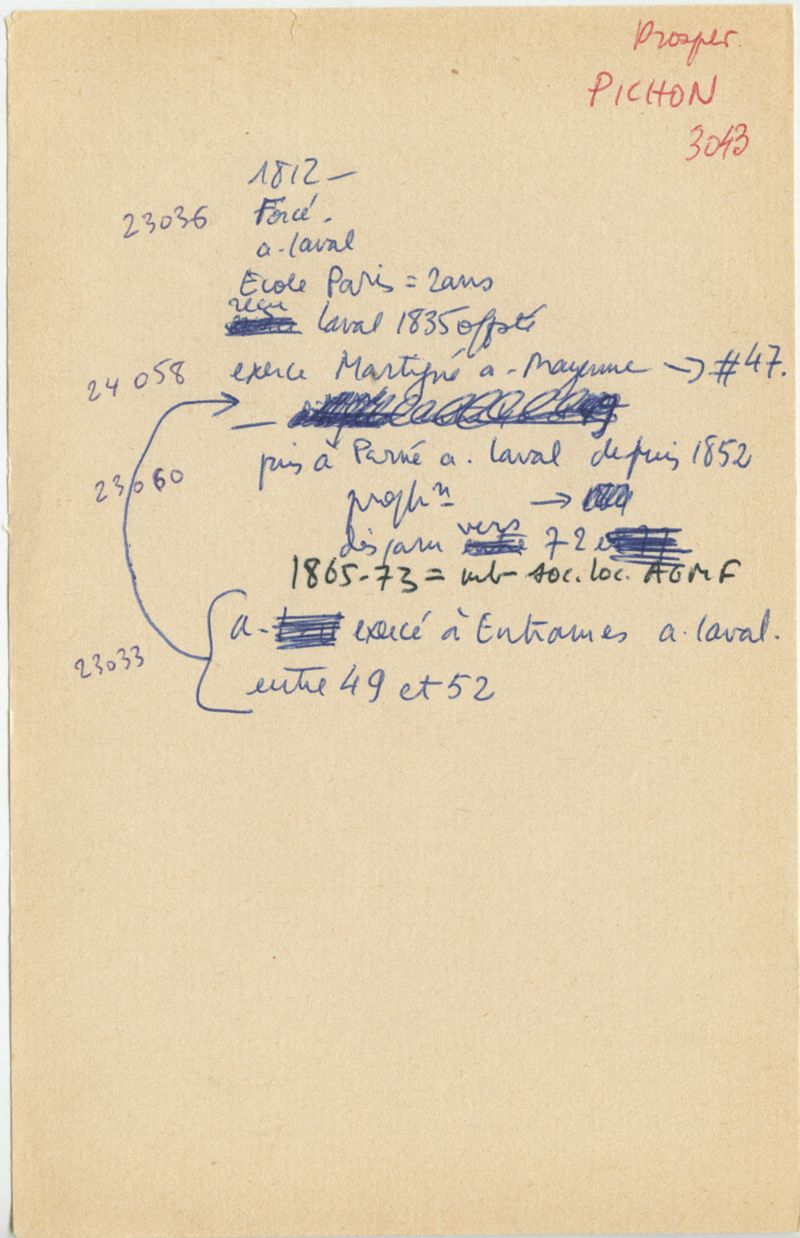 Prosper
PICHON
3043
1812 –
23036 Forcé.
a. Laval
Ecole Paris = 2ans
reçu
Laval 1835 offsté
24058 exerce Martigné a. Mayenne → #47.
–
23060 puis à Parné a. Laval depuis 1852
→
disparu vers 72
1865-73 = mb soc. loc. AGMF
a- exercé à Entrames a. Laval.
23033 entre 49 et 52